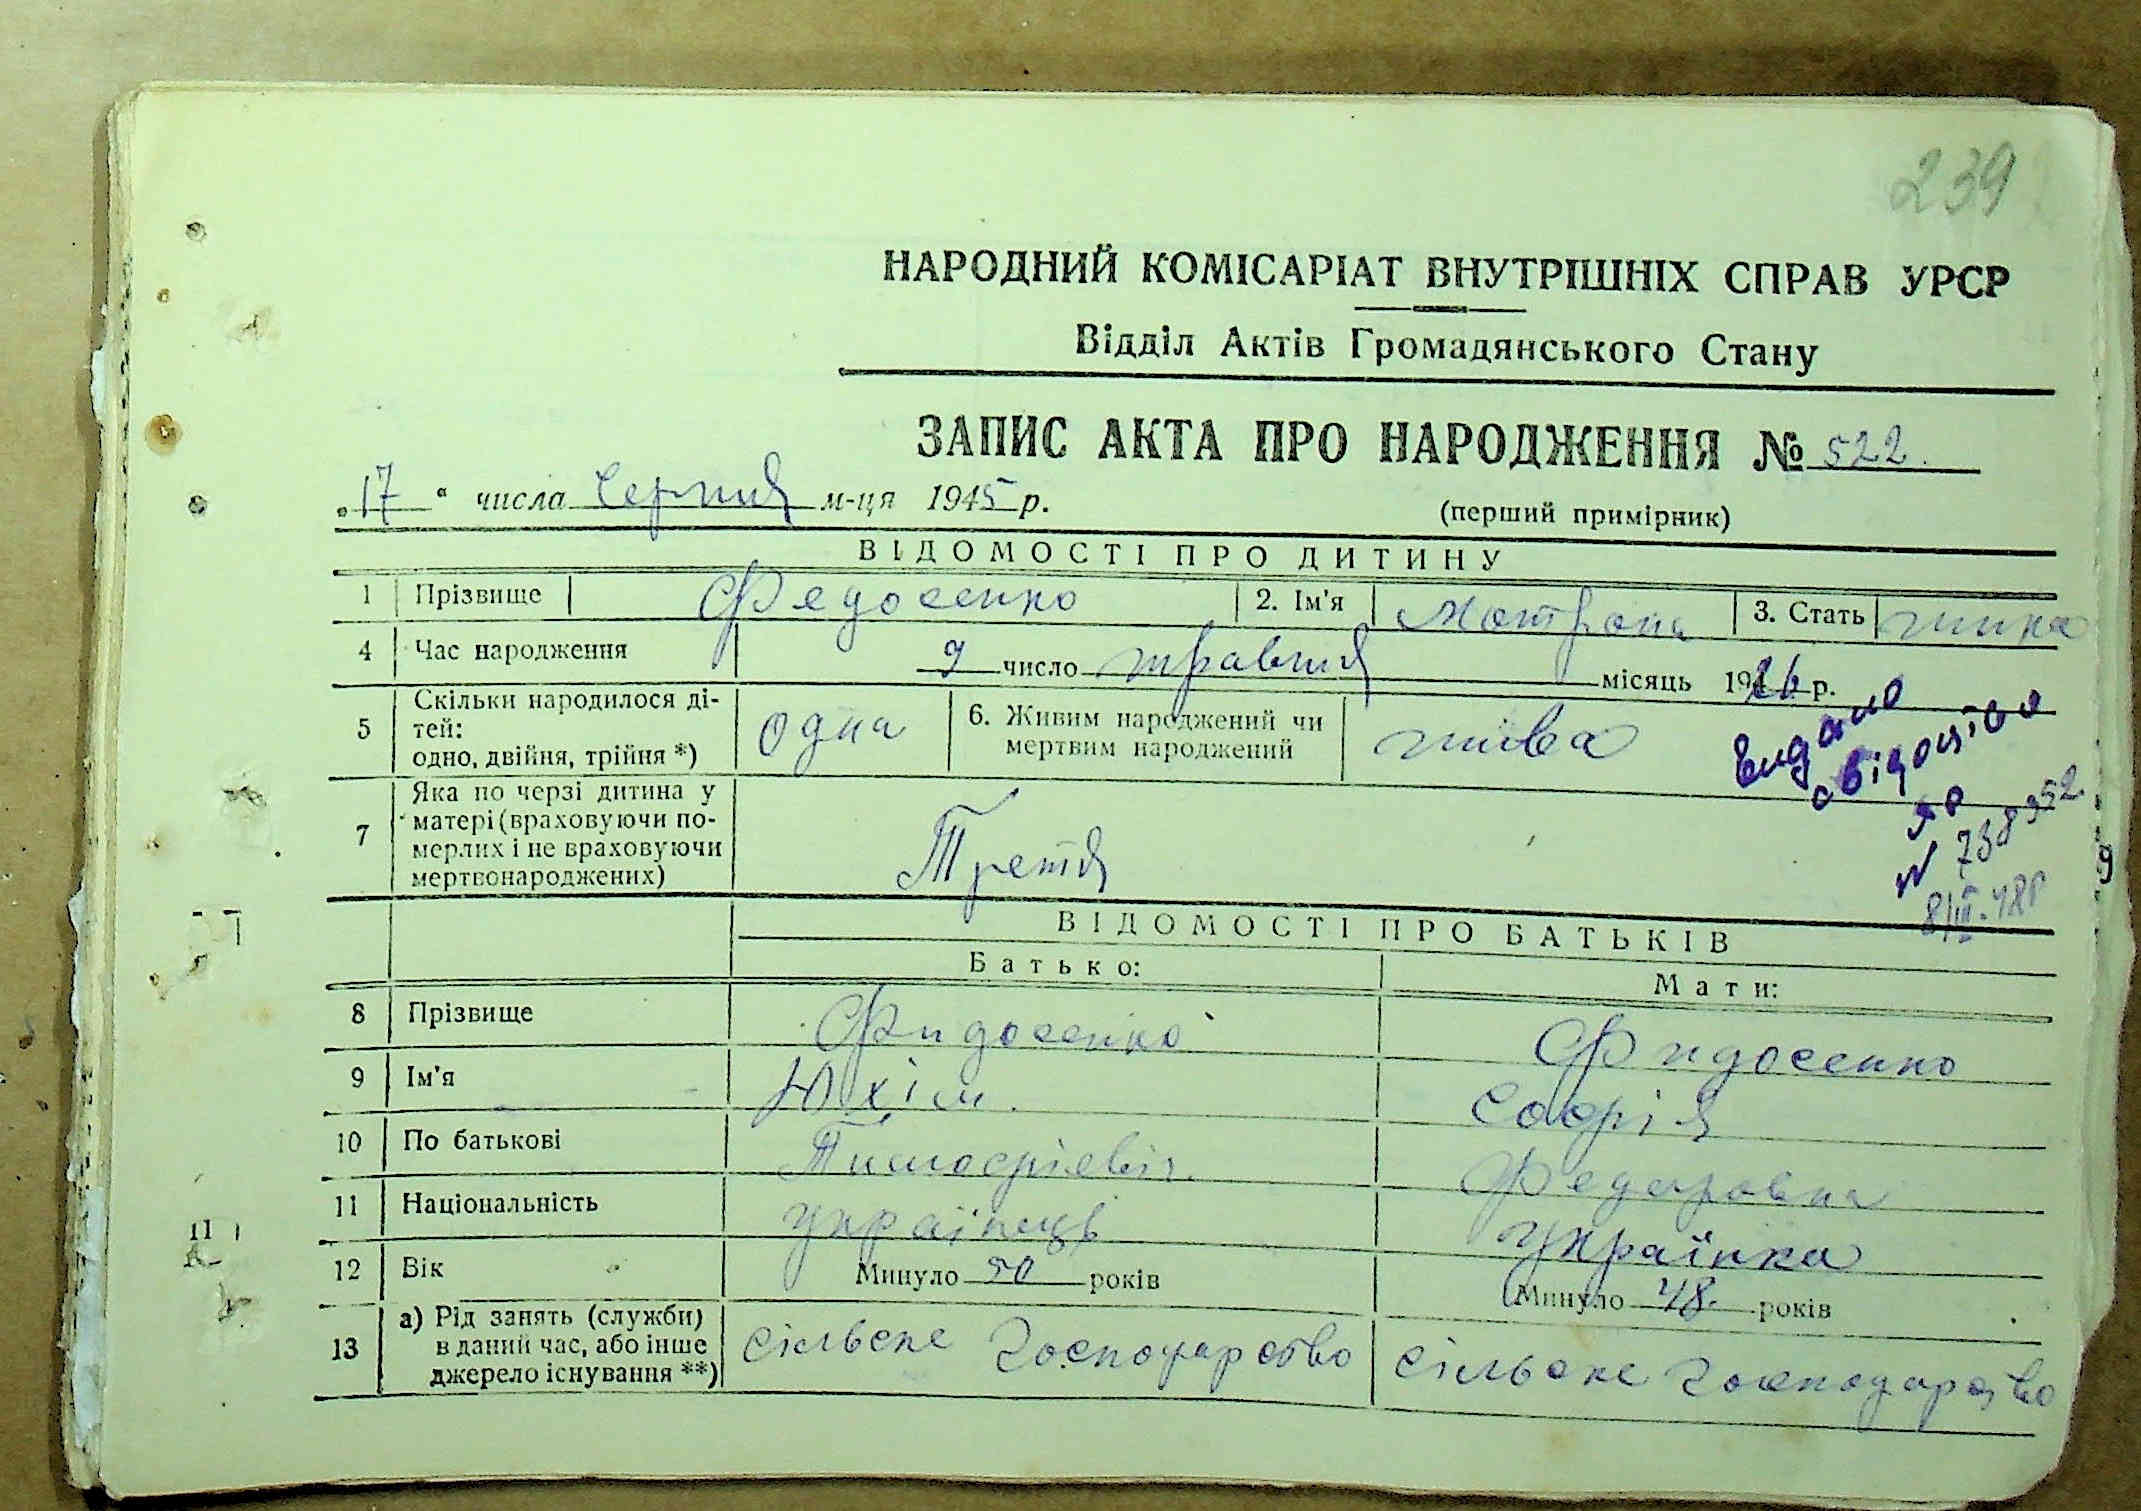 239
НАРОДНИЙ КОМІСАРІАТ ВНУТРІШНІХ СПРАВ УРСР
Відділ Актів Громадянського Стану
ЗАПИС АКТА ПРО НАРОДЖЕННЯ № 522.
„17“ числа Черпня м-ця 1945 р.
(перший примірник)
ВІДОМОСТІ ПРО ДИТИНУ
1 Прізвище Федосенко 2. Ім'я Мотрона 3. Стать жінка
4 Час народження 9 число травня місяць 1926 р.
5 Скільки народилося дітей: одно, двійня, трійня *) одна 6. Живим народжений чи мертвим народжений жива
Видано
свідоцтво
ЯО
№ 738352.
8/III-48р
7 Яка по черзі дитина у матері (враховуючи померлих і не враховуючи мертвонароджених) Третя
ВІДОМОСТІ ПРО БАТЬКІВ
Батько: Мати:
8 Прізвище Фидосенко Фидосенко
9 Ім'я Юхім Софія
10 По батькові Тимофієвіч Федоровна
11 Національність українець українка
12 Вік Минуло 50 років Минуло 48 років
13 а) Рід занять (служби) в даний час, або інше джерело існування **) Сільске господарство Сільске господарство